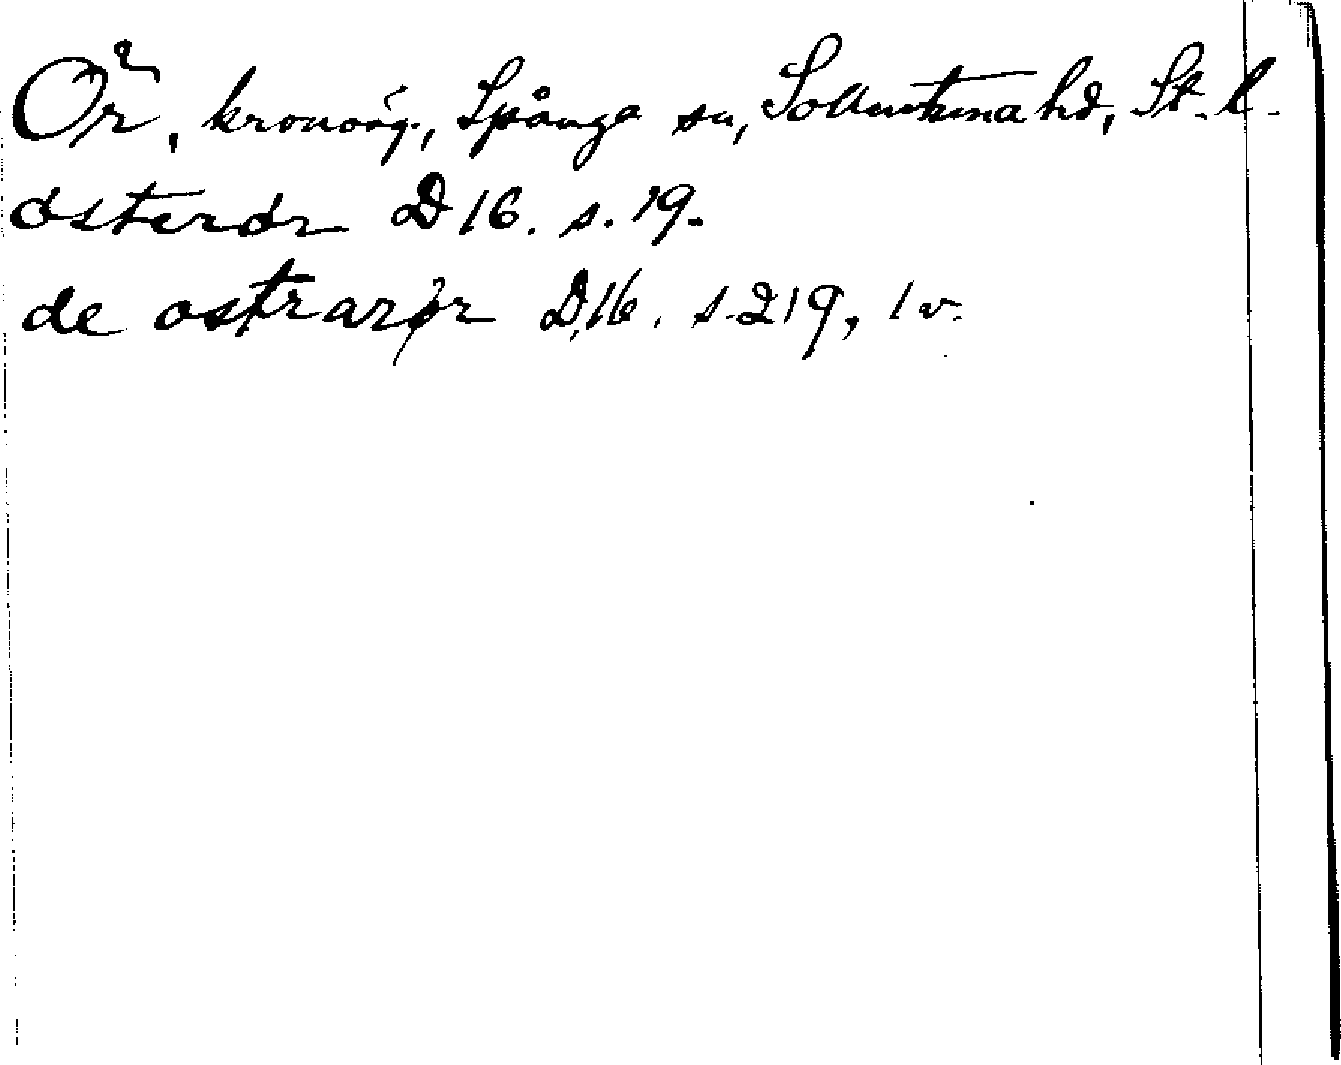 Ör, kronoäg., Spånga sn, Sollentuna hd, St. l.
österör D 16. s. 19.
de ostrarør D.16. s. 219, 1 v.